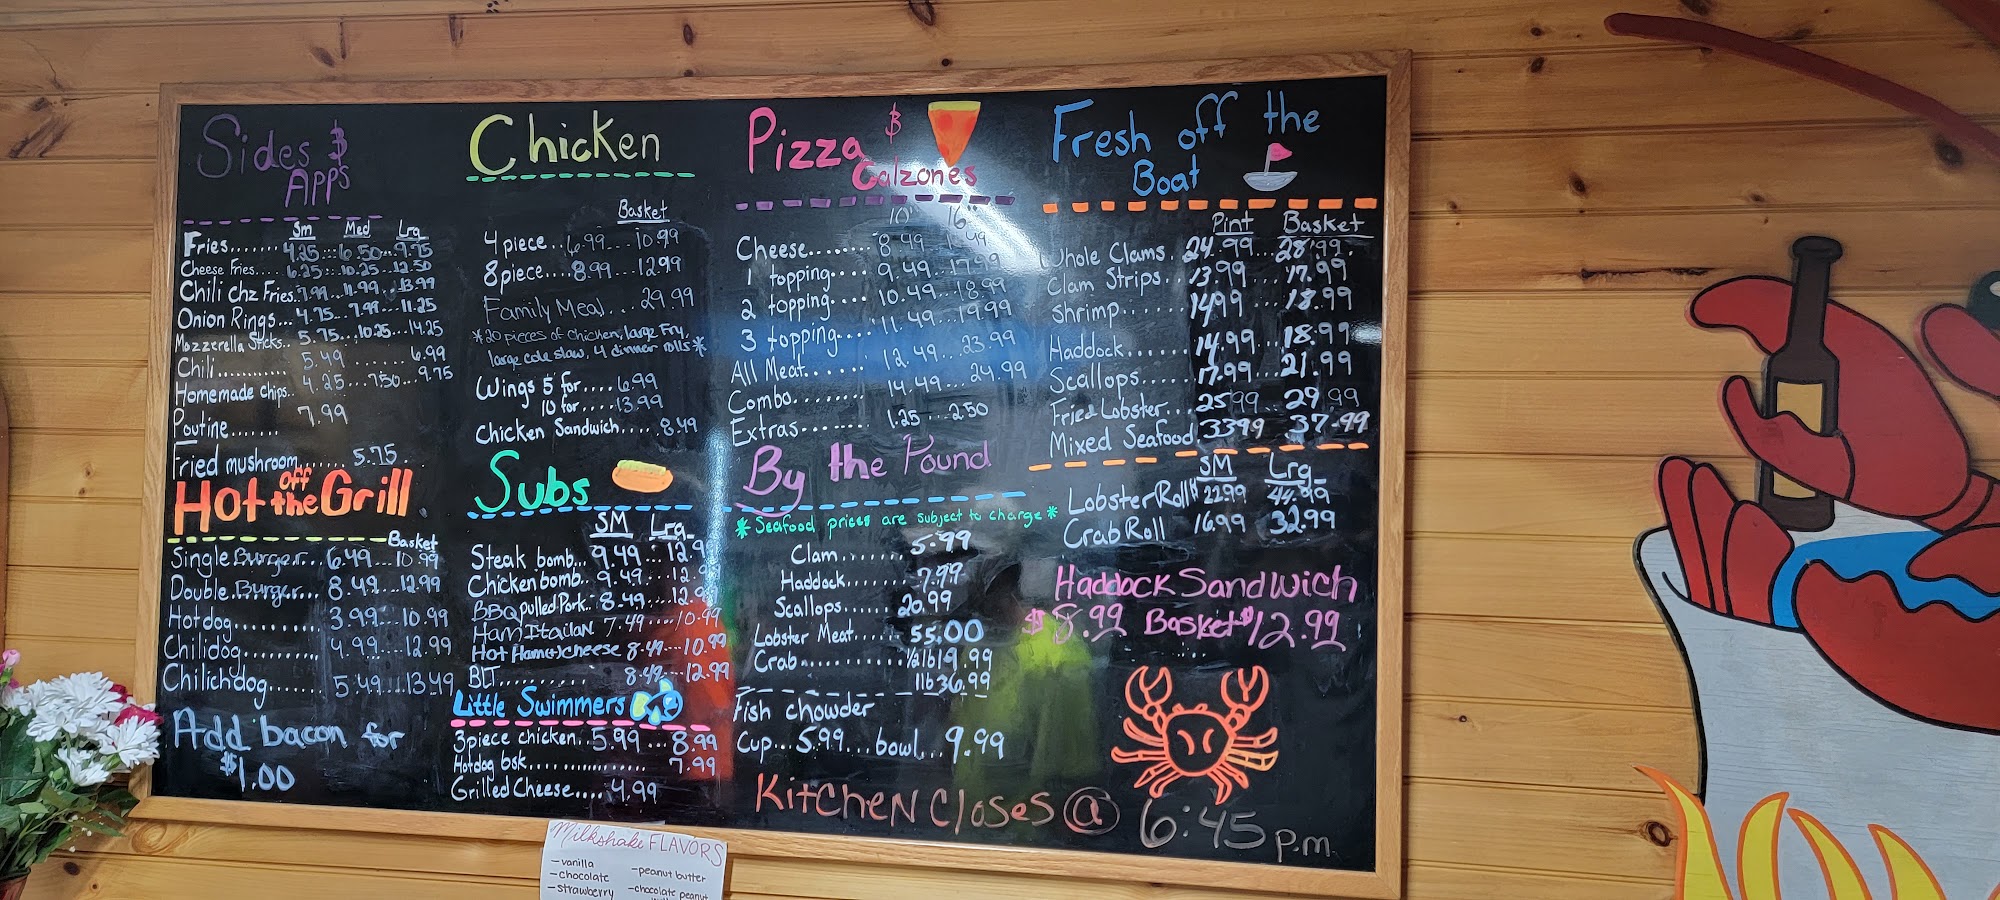 Sides &
APPS
Sm Med Lrg
Fries....... 4.25...6.50...9.75
Cheese Fries.... 6.25...10.25...12.50
Chili chz Fries..7.99...11.99...13.99
Onion Rings... 4.75...7.99...11.25
Mozzerella Sticks.. 5.75...10.25...14.25
Chili............ 5.49........6.99
Homemade chips.. 4.25...7.50...9.75
Poutine....... 7.99
Fried mushroom...... 5.75
Hot off the Grill
Basket
Single Burger... 6.49...10.99
Double Burger... 8.49...12.99
Hotdog.......... 3.99...10.99
Chilidog.......... 4.99...12.99
Chilichdog....... 5.49....13.49
Add bacon for
$1.00
Chicken
Basket
4 piece...6.99...10.99
8 piece....8.99...12.99
Family Meal... 29.99
*20 pieces of chicken, large Fry,
large cole slaw, 4 dinner rolls*
Wings 5 for....6.99
10 for.....13.99
Chicken Sandwich.... 8.49
Subs
SM Lrg
Steak bomb... 9.49... 12.9
Chicken bomb.. 9.49....12.9
BBQ pulled Pork.. 8.49....12.9
Ham Itailan 7.49.....10.99
Hot Ham(+)cheese 8.49...10.99
BLT.......... 8.49...12.99
Little Swimmers
3 piece chicken..5.99...8.99
Hotdog bsk............... 7.99
Grilled Cheese.... 4.99
Pizza &
Calzones
10" 16"
Cheese....... 8.49
1 topping.... 9.49...17.99
2 topping.... 10.49...18.99
3 topping.... 11.49...19.99
All Meat...... 12.49...23.99
Combo........ 14.49...24.99
Extras........ 1.25...2.50
By the Pound
*Seafood prices are subject to charge*
Clam....... 5.99
Haddock....... 7.99
Scallops...... 20.99
Lobster Meat...... 55.00
Crab.......... 1/2lb19.99
1lb36.99
Fish chowder
Cup...5.99...bowl...9.99
Kitchen Closes @ 6:45 p.m.
Fresh off the
Boat
Pint Basket
Whole Clams. 24.99...28.99.
Clam Strips. 13.99...17.99
Shrimp...... 14.99...18.99
Haddock...... 14.99...18.99
Scallops..... 17.99...21.99
Fried Lobster... 25.99...29.99
Mixed Seafood. 33.99 37.99
SM Lrg
Lobster Roll 22.99 44.99
Crab Roll 16.99 32.99
Haddock Sandwich
$8.99 Basket $12.99
Milkshake FLAVORS
- vanilla
- chocolate
- strawberry
- peanut butter
- chocolate peanut